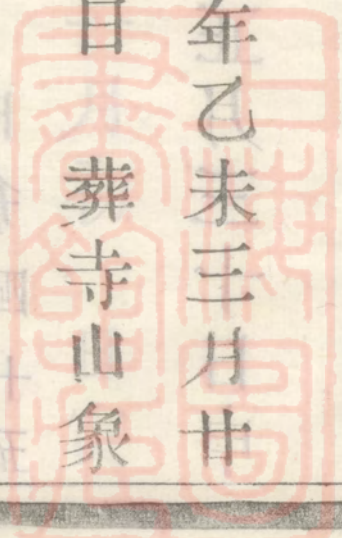 年乙未三月廿
日 葬寺山象